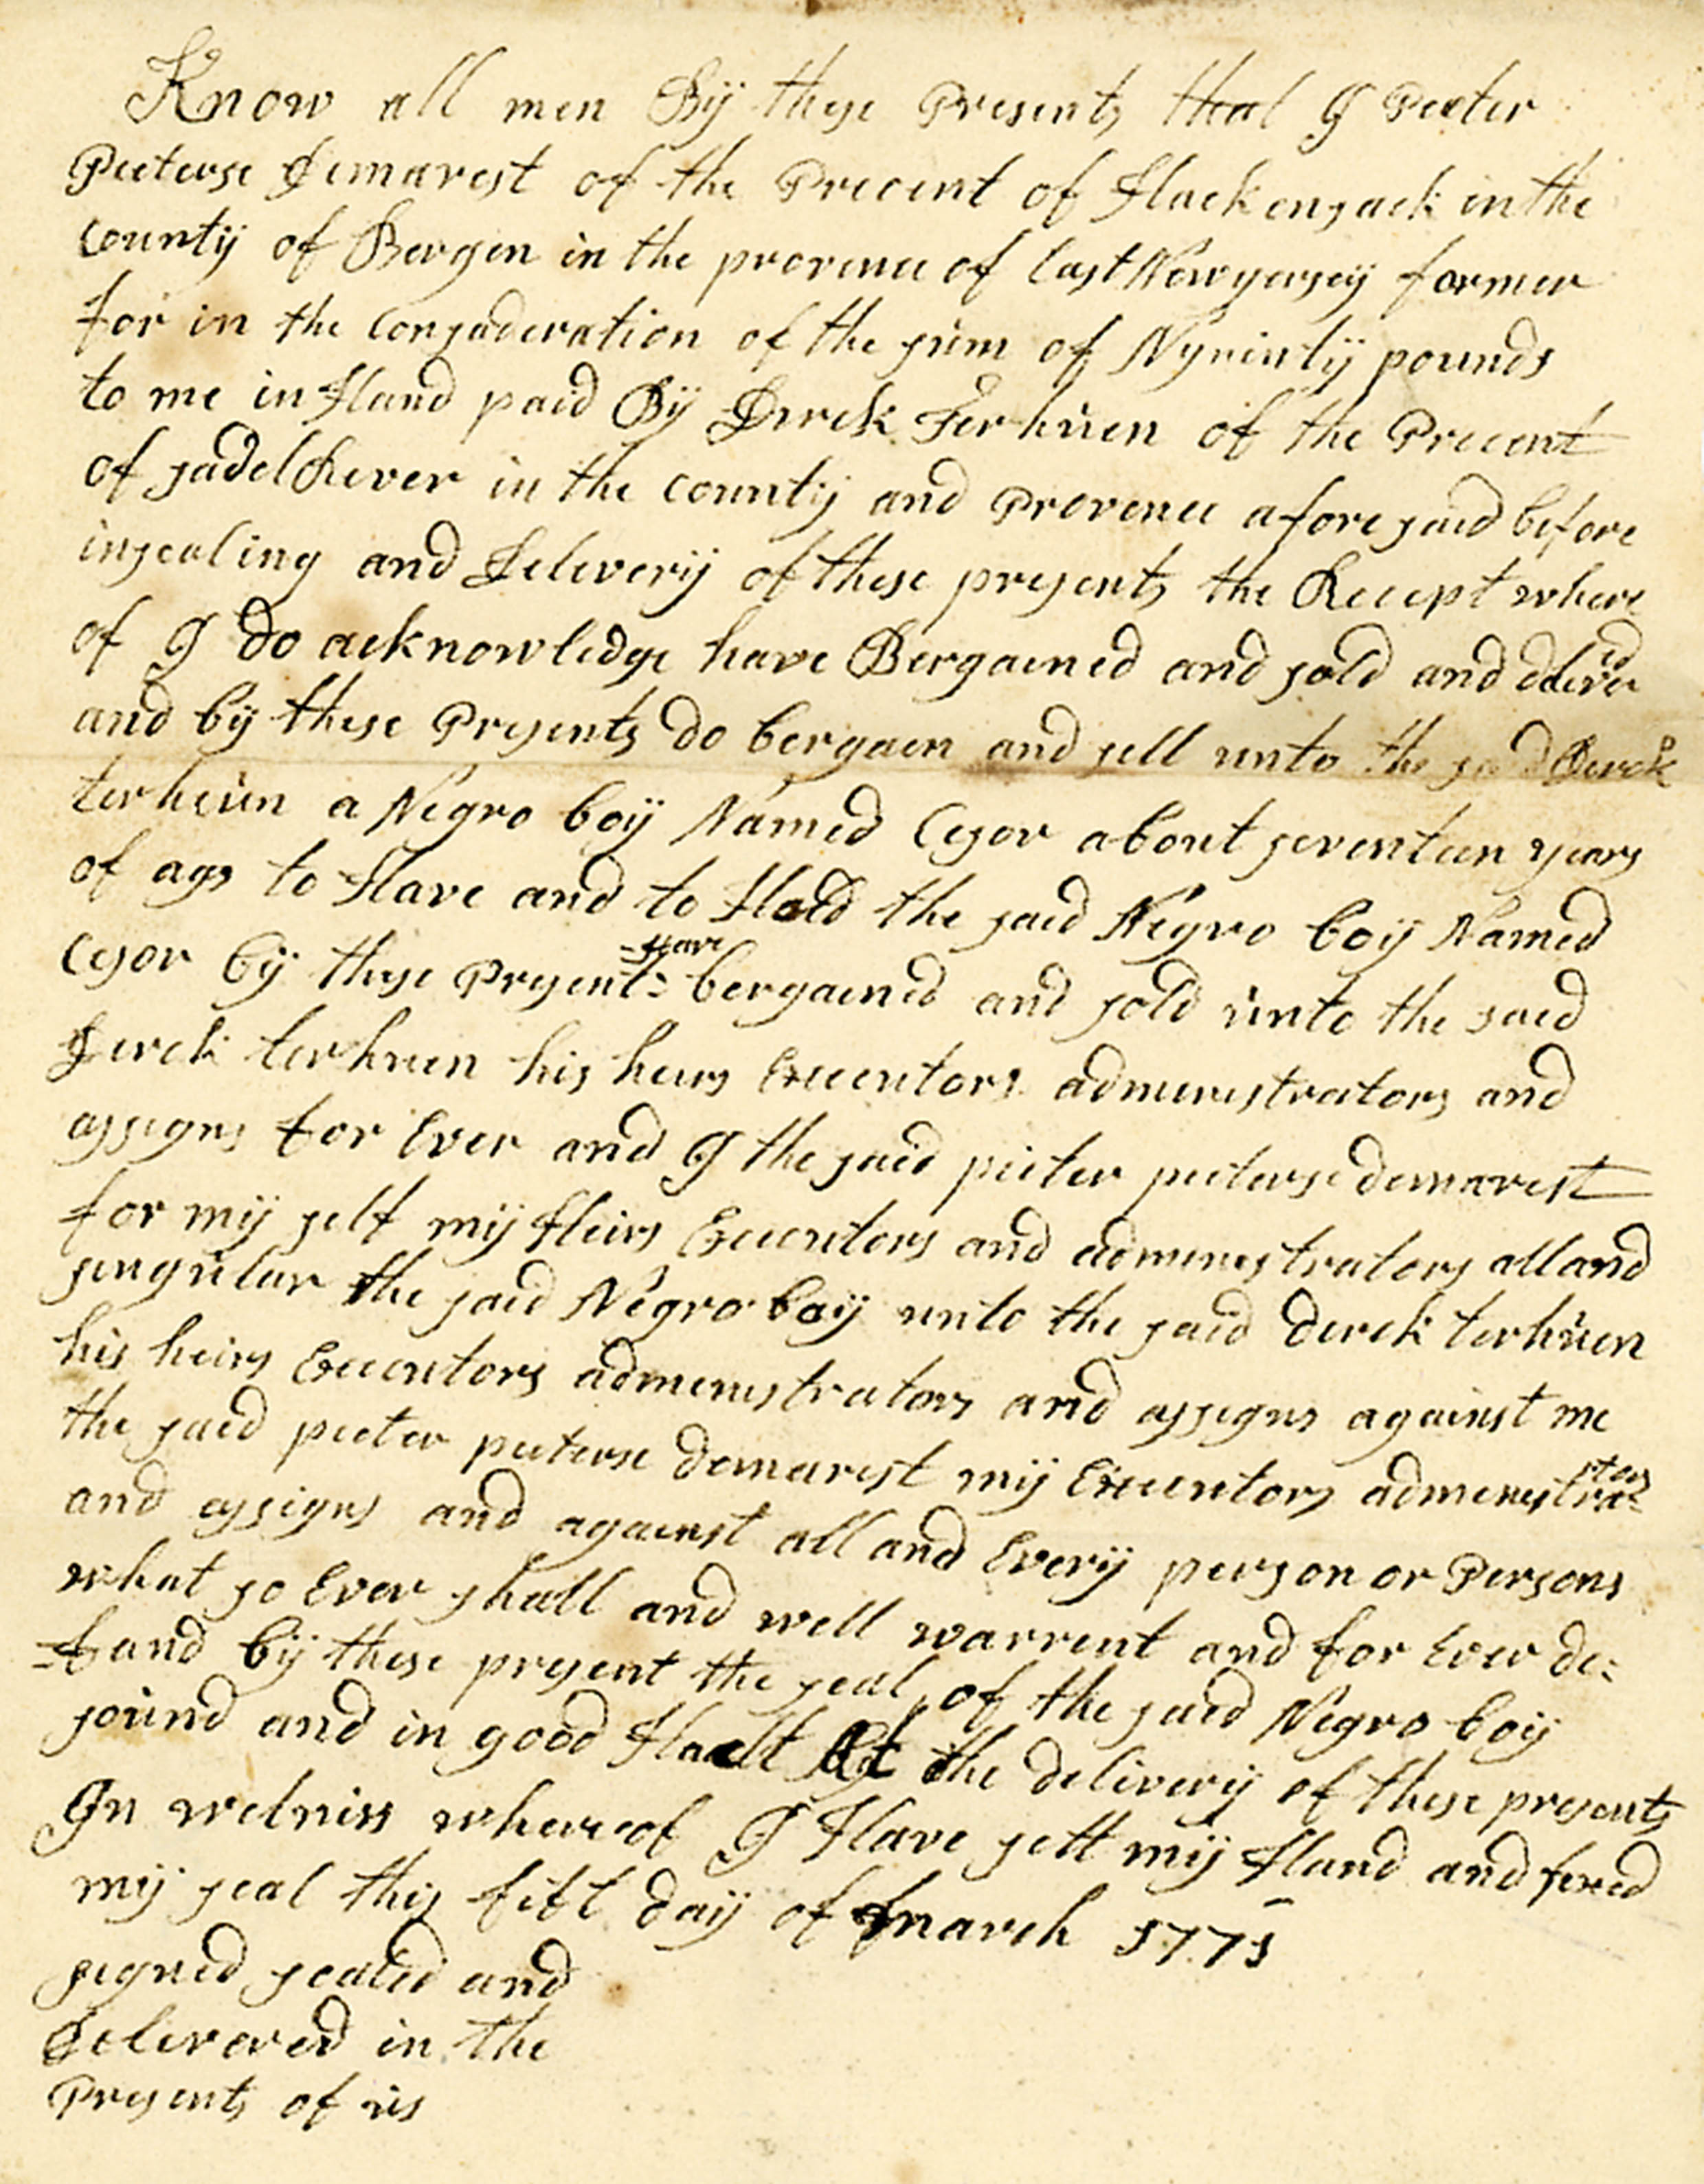 Know all men Bÿ these Presents that I Peeter
Peeterse Demarest of the Precent of Hackensack in the
County of Bergen in the provence of East New yersey farmer
for in the Consaderation of the sum of Nyninty pounds
to me in Hand paid Bÿ Derck Terhuen of the Precent
of sadel River in the County and Provence afore said before
insealing and Deleverÿ of these presents the Receept where
of I do acknowledge have Bergained and sold and delivered
and bÿ these Presents do bergaen and sell unto the said Derck
terheun a Negro boÿ Named Cesor about seventeen years
of age to Have and to Hold the said Negro boÿ Named
Cesor bÿ these Presents have bergained and sold unto the said
Derck terhuen his heirs Executors admenestrators and
assigns for Ever and I the said peeter peeterse demarest
for mÿ self mÿ Heirs Executors and admenestrators all and
sengular the said Negro boÿ unto the said derck terhuen
his heirs Executors admenestrators and assigns against me
the said peeter peeterse demarest mÿ Executors admenestrators
and assigns and against all and Everÿ person or Persons
what so Ever shall and well warrent and for Ever de:
=fand bÿ these present the seal of the said Negro boÿ
sound and in good Haelt At the deliverÿ of these presents
In wetniss whereof I Have sett mÿ Hand and fexed
mÿ seal this fift daÿ of march 1771
segned sealed and
Delevered in the
Presents of us